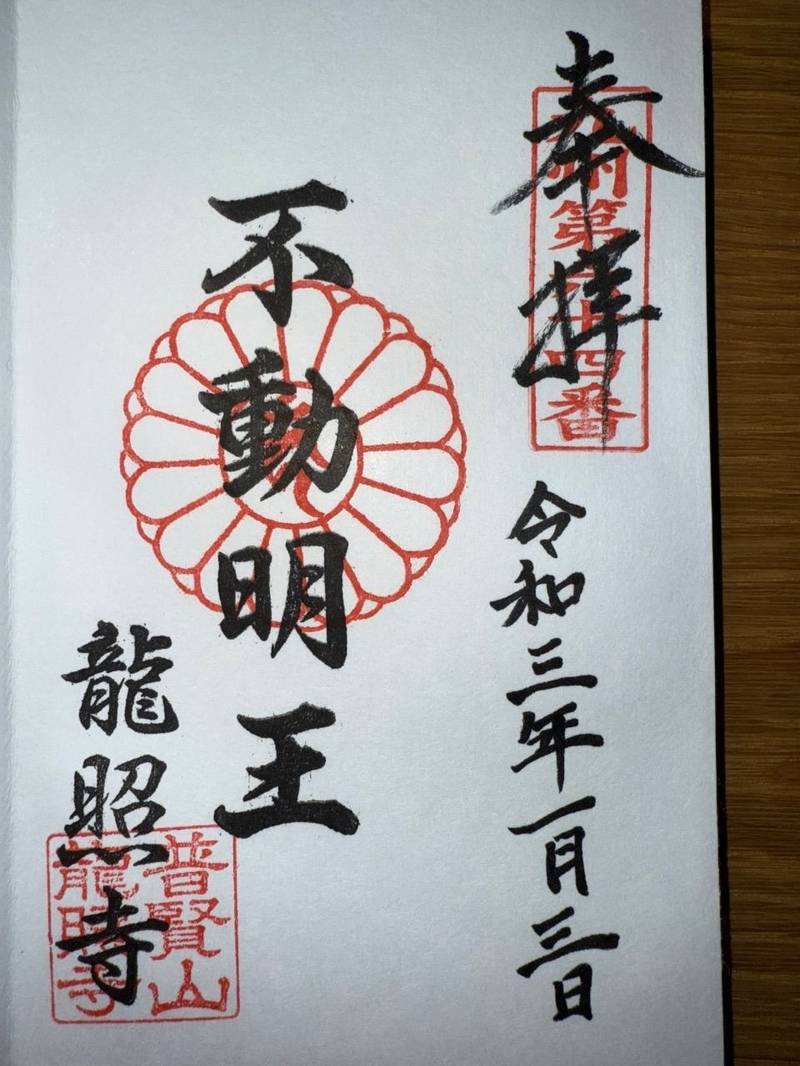 奉拝
第 四番
令和三年一月三日
不動明王
龍照寺
普賢山
龍照寺